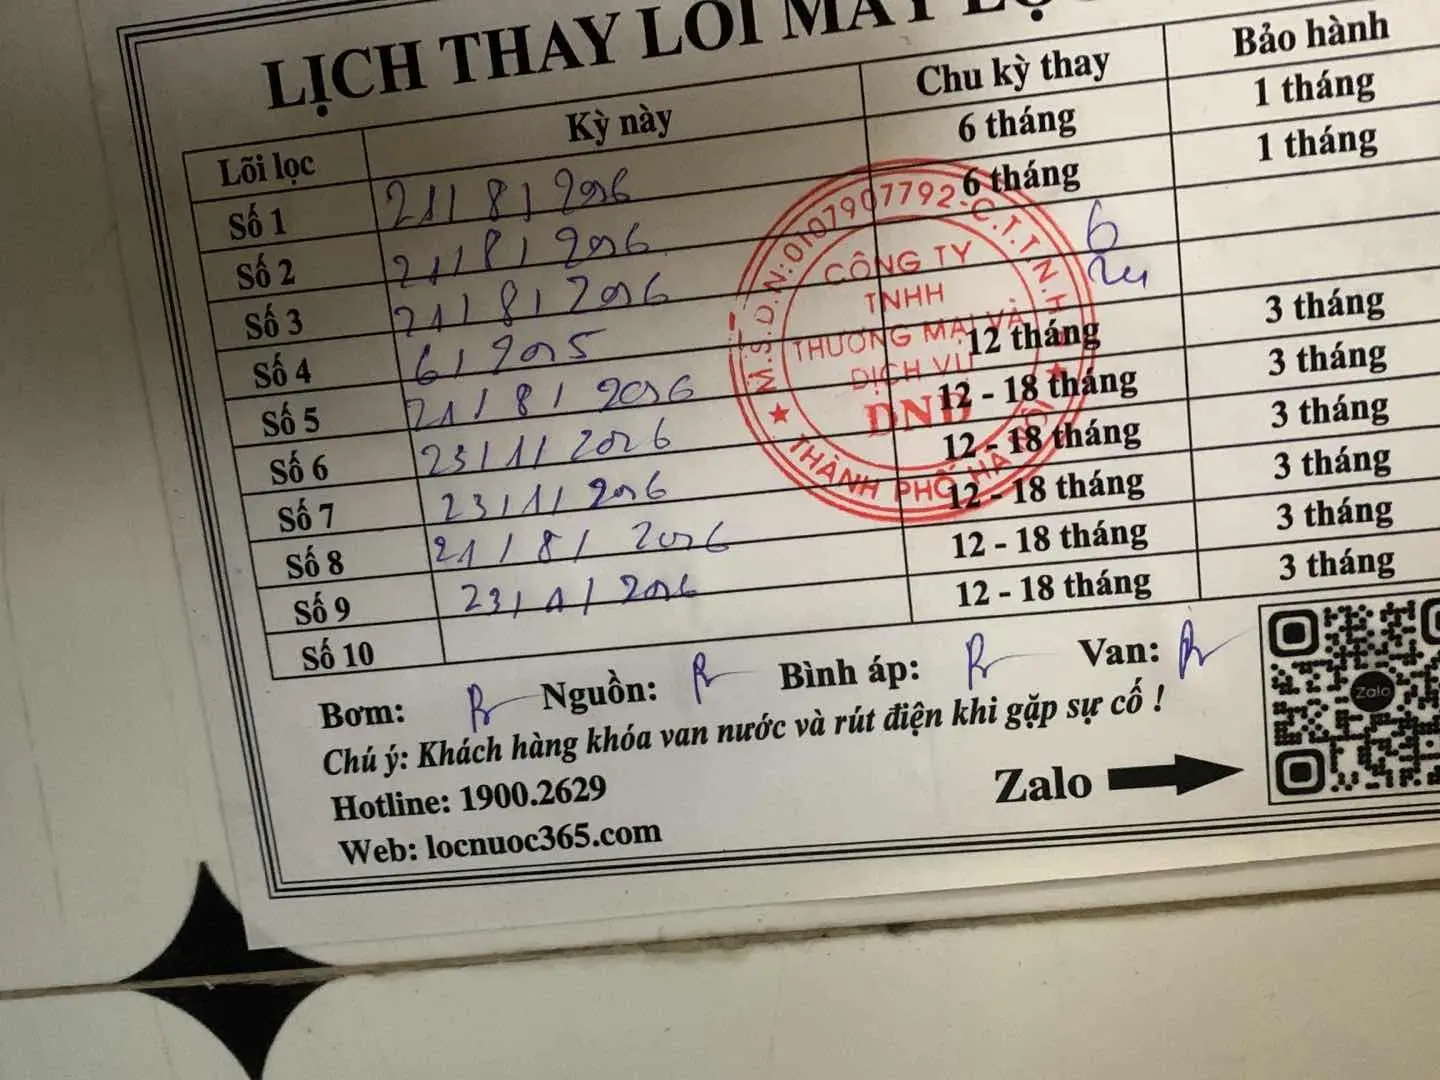 LỊCH THAY LÕI MÁY LỌC
Lõi lọc Kỳ này Chu kỳ thay Bảo hành
Số 1 21/8/2026 6 tháng 1 tháng
Số 2 21/8/2026 6 tháng 1 tháng
Số 3 21/8/2026 6
Số 4 6/2025 24
Số 5 21/8/2026 12 tháng 3 tháng
Số 6 23/1/2026 12 - 18 tháng 3 tháng
Số 7 23/1/2026 12 - 18 tháng 3 tháng
Số 8 21/8/2026 12 - 18 tháng 3 tháng
Số 9 23/1/2026 12 - 18 tháng 3 tháng
Số 10 12 - 18 tháng 3 tháng
M.S.D.N:0107907792-C.T.T.N.H
CÔNG TY
TNHH
THƯƠNG MẠI VÀ
DỊCH VỤ
DND
THÀNH PHỐ HÀ NỘI
Bơm: Nguồn: Bình áp: Van:
Chú ý: Khách hàng khóa van nước và rút điện khi gặp sự cố !
Hotline: 1900.2629
Zalo
Web: locnuoc365.com
Zalo